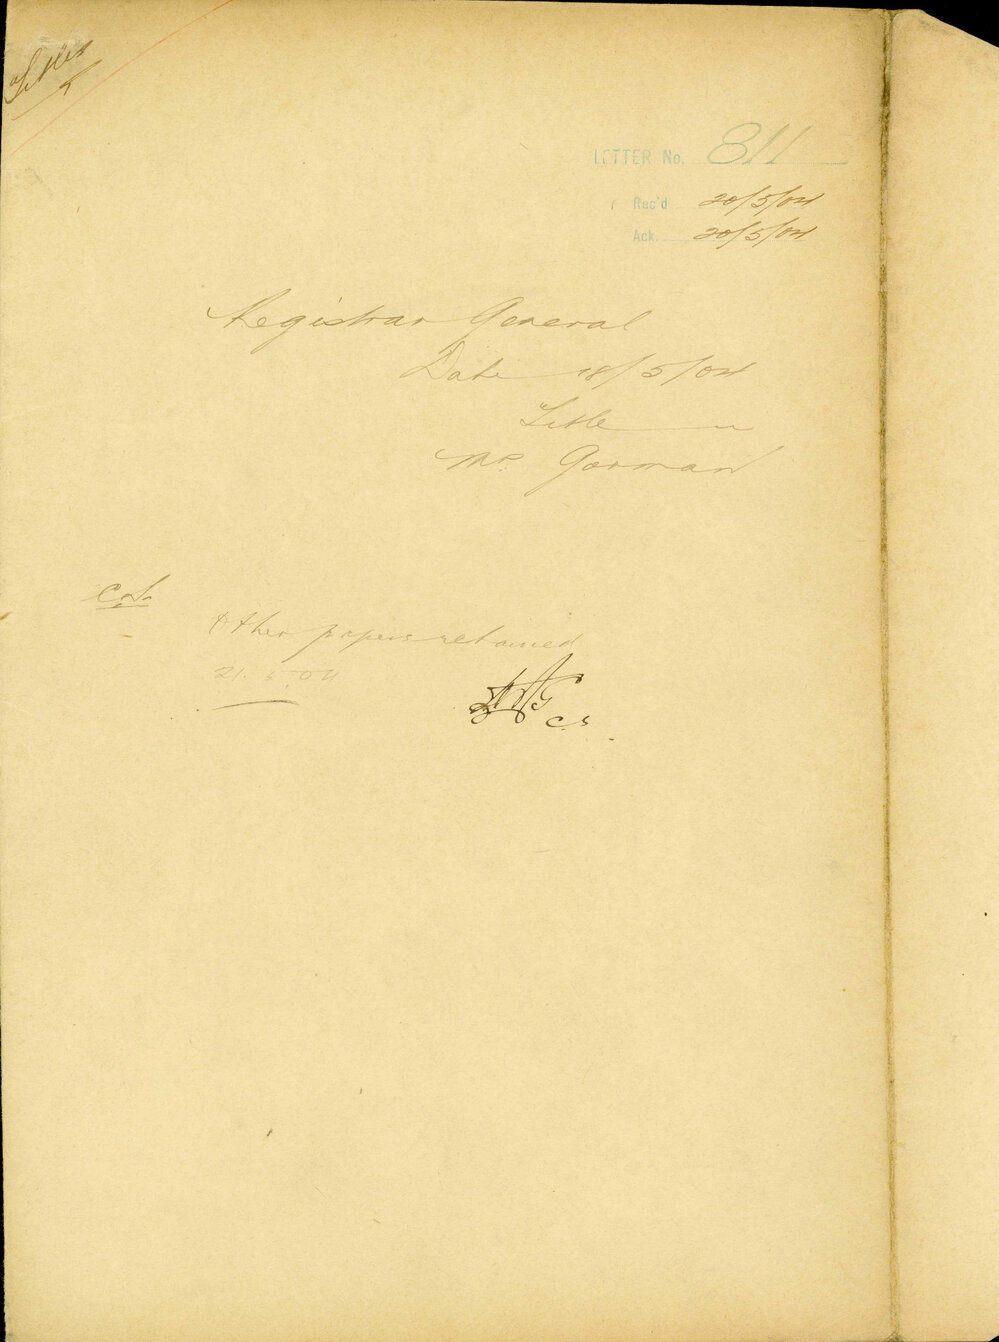 Titles
LETTER No. 811
Rec'd 20/5/04
Ack. 20/5/04
Registrar General
Date 18/5/04
Title
Mr. Gorman
C.S.
Other papers returned
21.5.04
C.S.